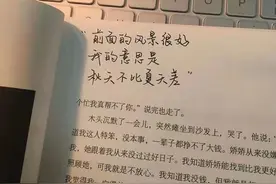 "前面的风景很好
我的意思是
秋天不比夏天差"
个忙我真帮不了你。"说完也走了。
木头沉默了一会儿，突然瘫坐到沙发上，哭了。他说：
道我这人特笨，没本事，一辈子都挣不了大钱。娇娇从来没嫌
我，她跟着我从来没过过好日子。我知道娇娇能找到比我更好
照顾她，可我就是不放心。我知道我没钱，但我